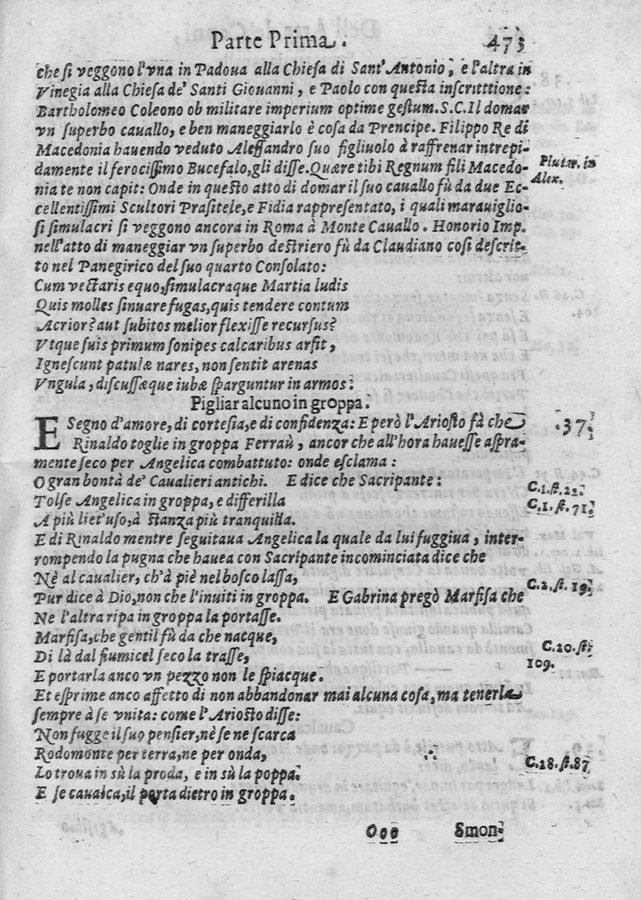 Parte Prima. 473
che ſi veggono l'vna in Padoua alla Chieſa di Sant'Antonio, e l'altra in
Vinegia alla Chieſa de' Santi Giouanni, e Paolo con queſta inſcrittione:
Bartholomeo Coleono ob militare imperium optime geſtum. S.C. Il domar
vn ſuperbo cauallo, e ben maneggiarlo è coſa da Prencipe. Filippo Re di
Macedonia hauendo veduto Aleſſandro ſuo figliuolo à raffrenar intrepi-
damente il ferociſſimo Bucefalo, gli diſſe. Quære tibi Regnum fili Macedo-
nia te non capit: Onde in queſto atto di domar il ſuo cauallo fù da due Ec-
Plutar. in
Alex.
cellentiſſimi Scultori Praſitele, e Fidia rappreſentato, i quali marauiglio-
ſi ſimulacri ſi veggono ancora in Roma à Monte Cauallo. Honorio Imp.
nell'atto di maneggiar vn ſuperbo deſtriero fù da Claudiano coſi deſcrit-
to nel Panegirico del ſuo quarto Conſolato:
Cum vectaris equo, ſimulacraque Martia ludis
Quis molles ſinuare fugas, quis tendere contum
Acrior? aut ſubitos melior flexiſſe recurſus?
Vtque ſuis primum ſonipes calcaribus arſit,
Igneſcunt patulæ nares, non ſentit arenas
Vngula, diſcuſſæque iubæ ſparguntur in armos:
Pigliar alcuno in groppa.
E Segno d'amore, di corteſia, e di confidenza: E però l'Arioſto fà che
37.
Rinaldo toglie in groppa Ferraù, ancor che all'hora haueſſe aſpra-
mente ſeco per Angelica combattuto: onde eſclama:
O gran bontà de' Caualieri antichi. E dice che Sacripante:
C.1.ſt.22.
Tolſe Angelica in groppa, e differilla
C.1.ſt.71.
A più liet'uſo, à ſtanza più tranquilla.
E di Rinaldo mentre ſeguitaua Angelica la quale da lui fuggiua, inter-
rompendo la pugna che hauea con Sacripante incominciata dice che
Nè al caualier, ch'à piè nel boſco laſſa,
Pur dice à Dio, non che l'inuiti in groppa. E Gabrina pregò Marfiſa che
C.2.ſt.19.
Ne l'altra ripa in groppa la portaſſe.
Marfiſa, che gentil fù da che nacque,
Di là dal fiumicel ſeco la traſſe,
C.20.ſt.
109.
E portarla anco vn pezzo non le ſpiacque.
Et eſprime anco affetto di non abbandonar mai alcuna coſa, ma tenerla
ſempre à ſe vnita: come l'Arioſto diſſe:
Non fugge il ſuo penſier, nè ſe ne ſcarca
Rodomonte per terra, ne per onda,
C.28.ſt.87
Lo troua in sù la proda, e in sù la poppa.
E ſe caualca, il porta dietro in groppa.
Ooo Smon-